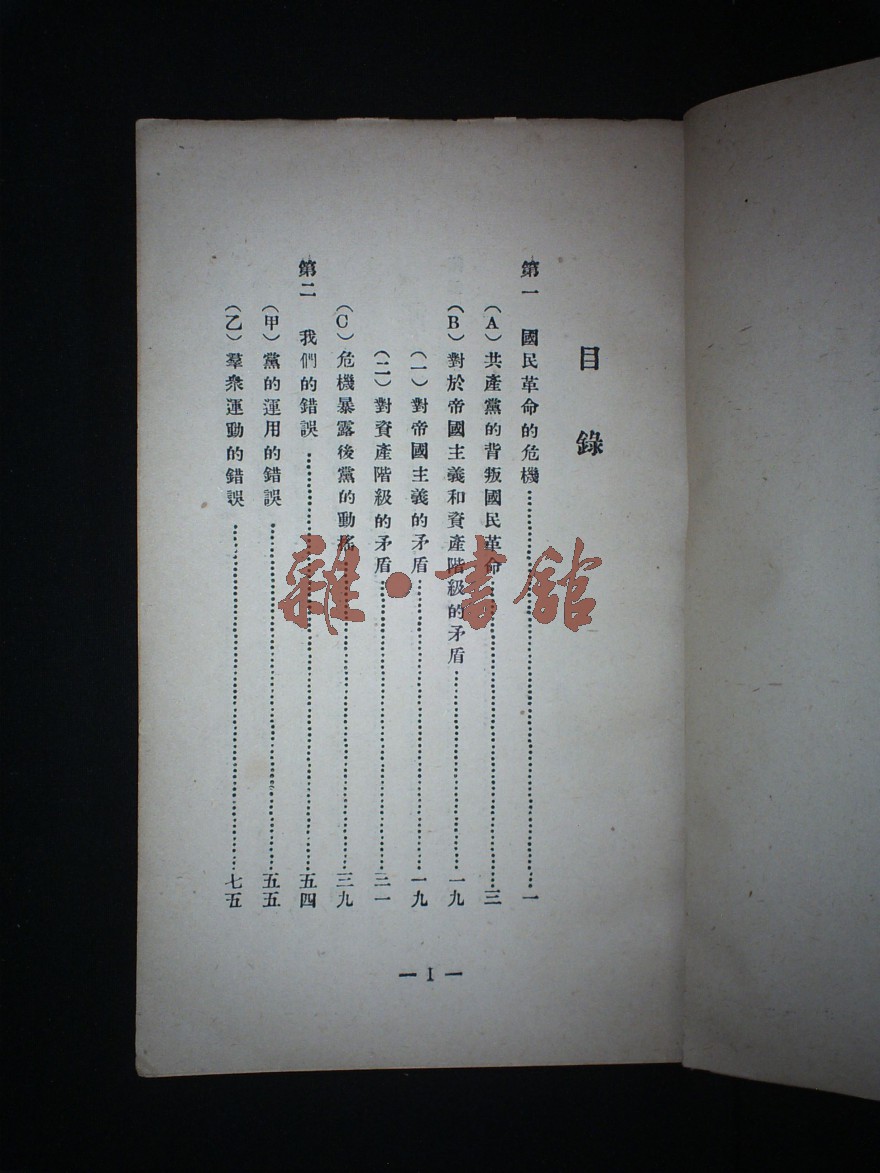 目錄
第一　國民革命的危機……一
（A）共產黨的背叛國民革命……三
（B）對於帝國主義和資產階級的矛盾……一九
（一）對帝國主義的矛盾……一九
（二）對資產階級的矛盾……三一
（C）危機暴露後黨的動搖……三九
第二　我們的錯誤……五四
（甲）黨的運用的錯誤……五五
（乙）羣衆運動的錯誤……七五
— I —
雜·書館